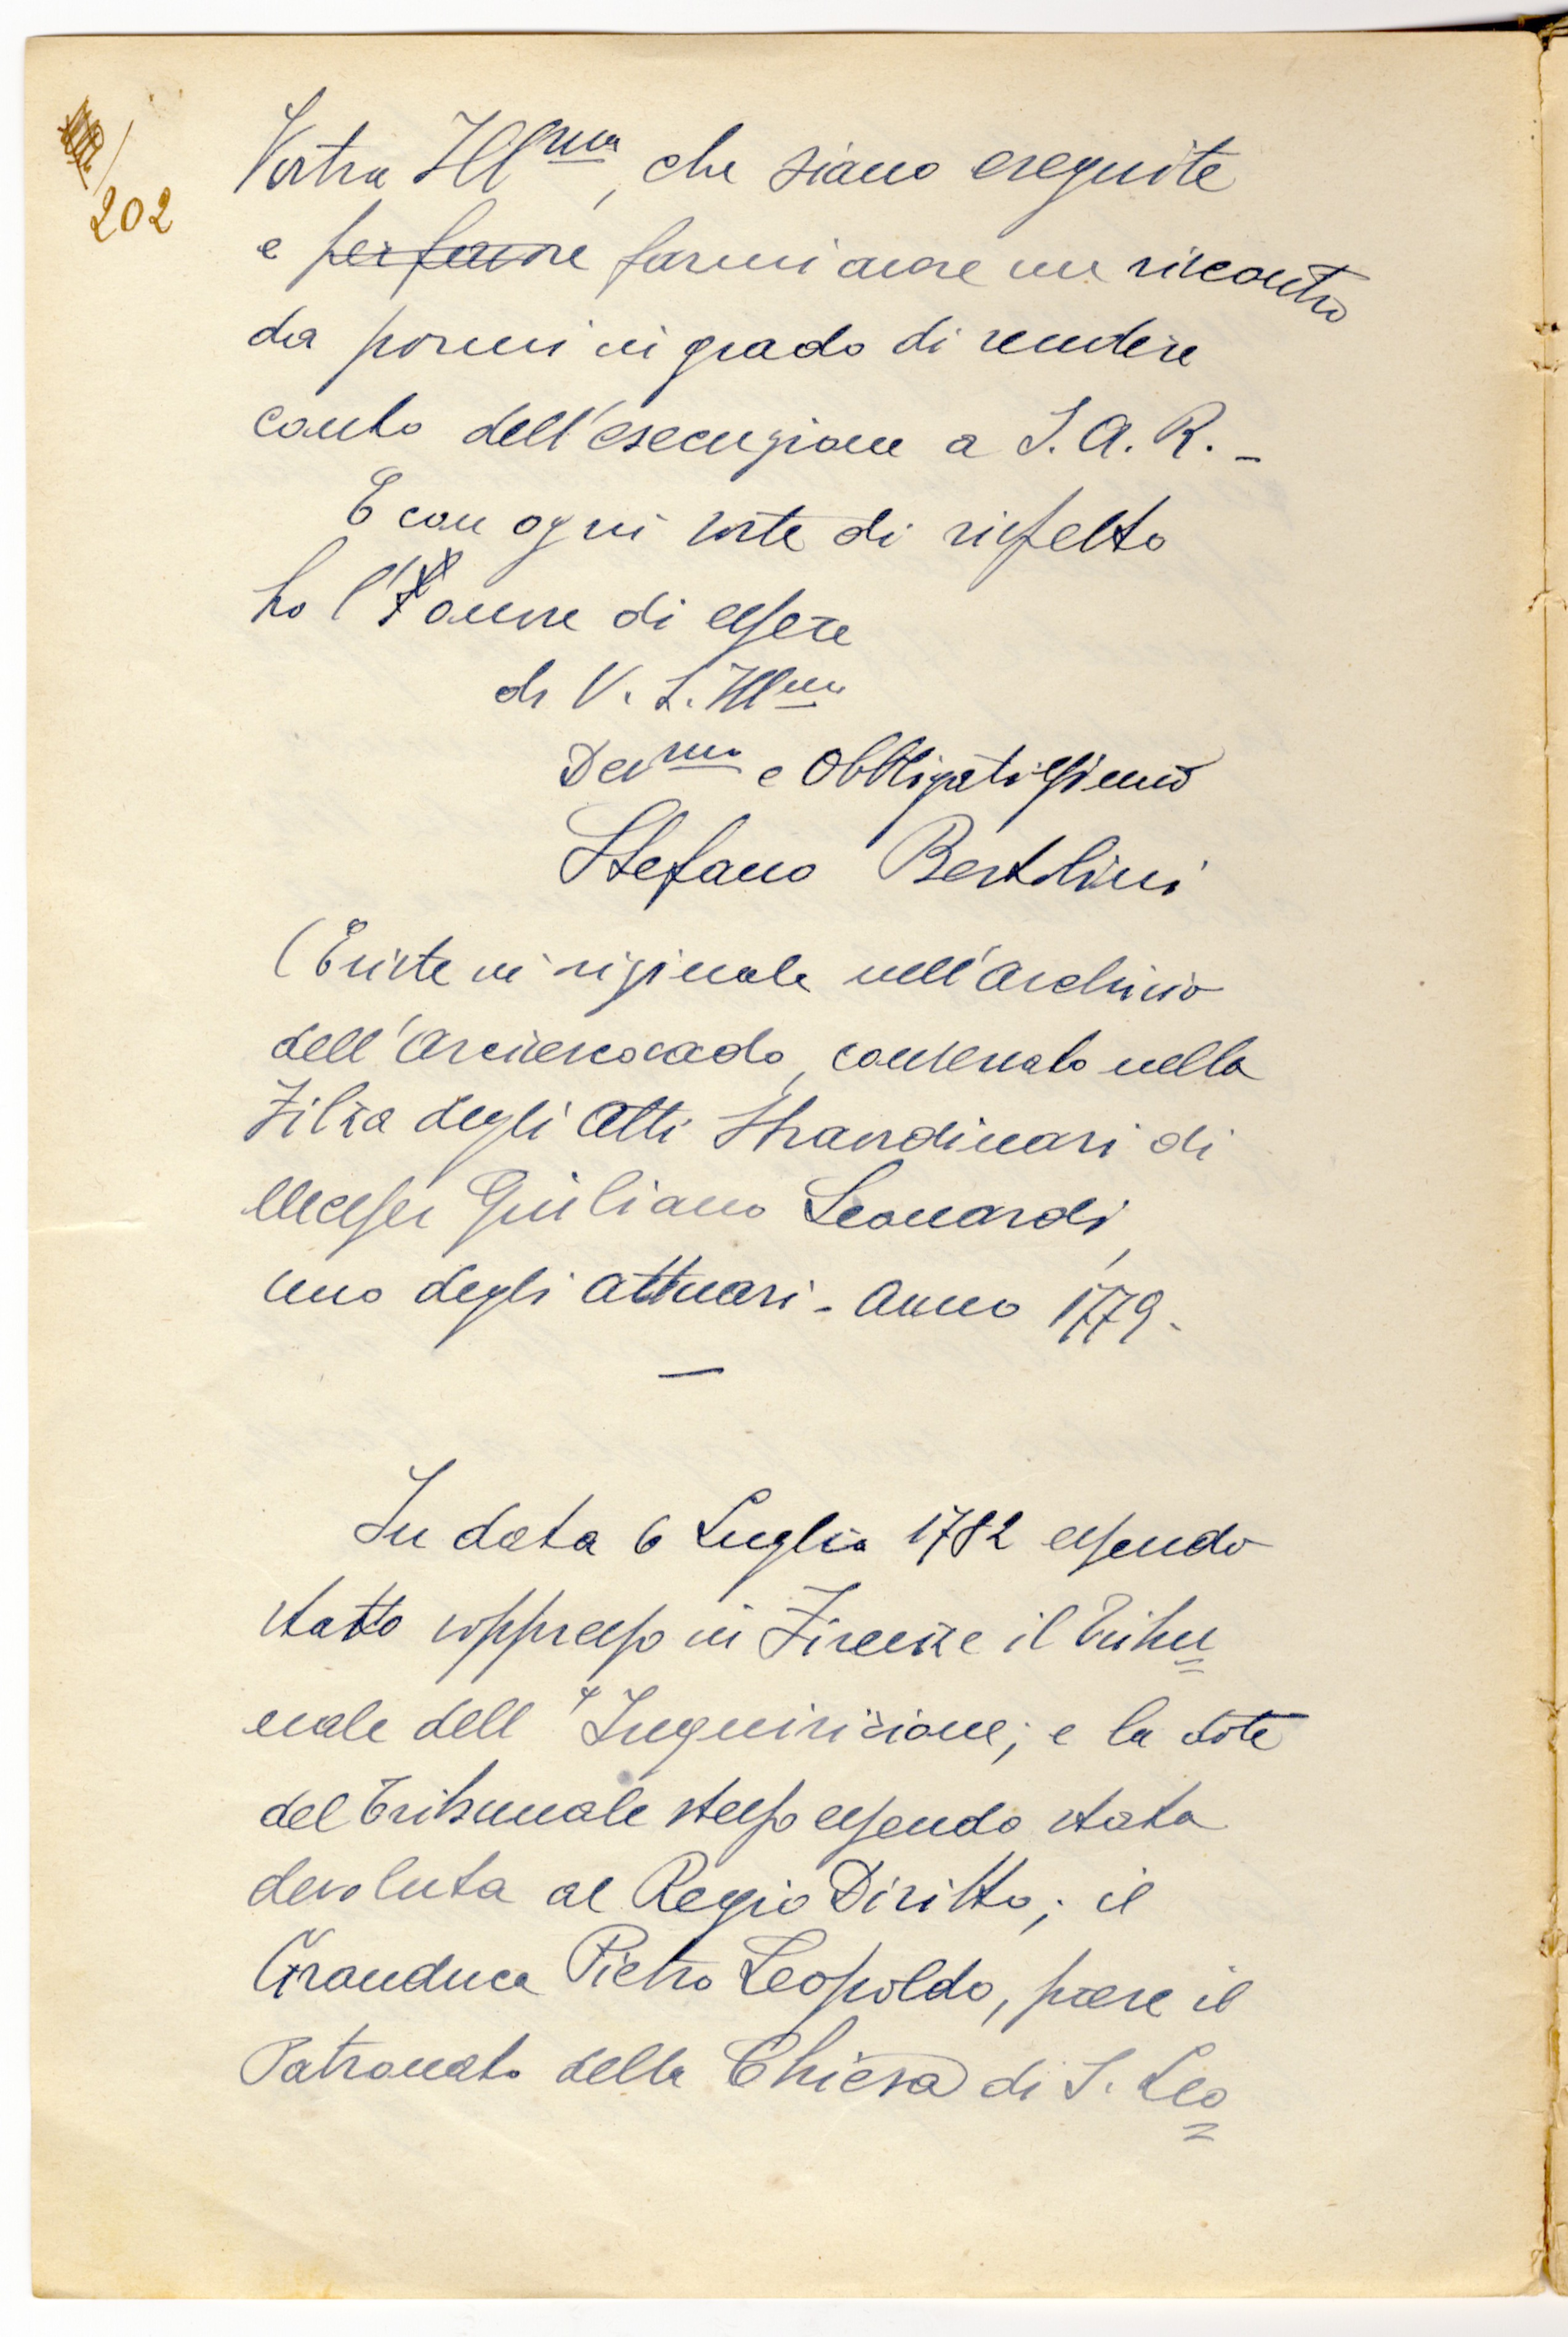 202
Vostra Ill^ma, che siano eseguite
e per favore farmi avere un riscontro
da pormi in grado di rendere
conto dell'esecuzione a S. A. R. -
E con ogni sorte di rispetto
ho l'onore di essere
di V. S. Ill^ma
Dev^mo e Obbligatissimo
Stefano Bertolini
(Esiste in originale nell'Archivio
dell'Arcivescovado, conservato nella
Filza degli Atti Straordinari di
Messer Giuliano Leonardi,
uno degli Attuari - Anno 1779.
—
In data 6 Luglio 1782 essendo
stato soppresso in Firenze il Tribu=
nale dell'Inquisizione; e la dote
del Tribunale stesso essendo stata
devoluta al Regio Diritto; il
Granduca Pietro Leopoldo, pose il
Patronato della Chiesa di S. Leo=